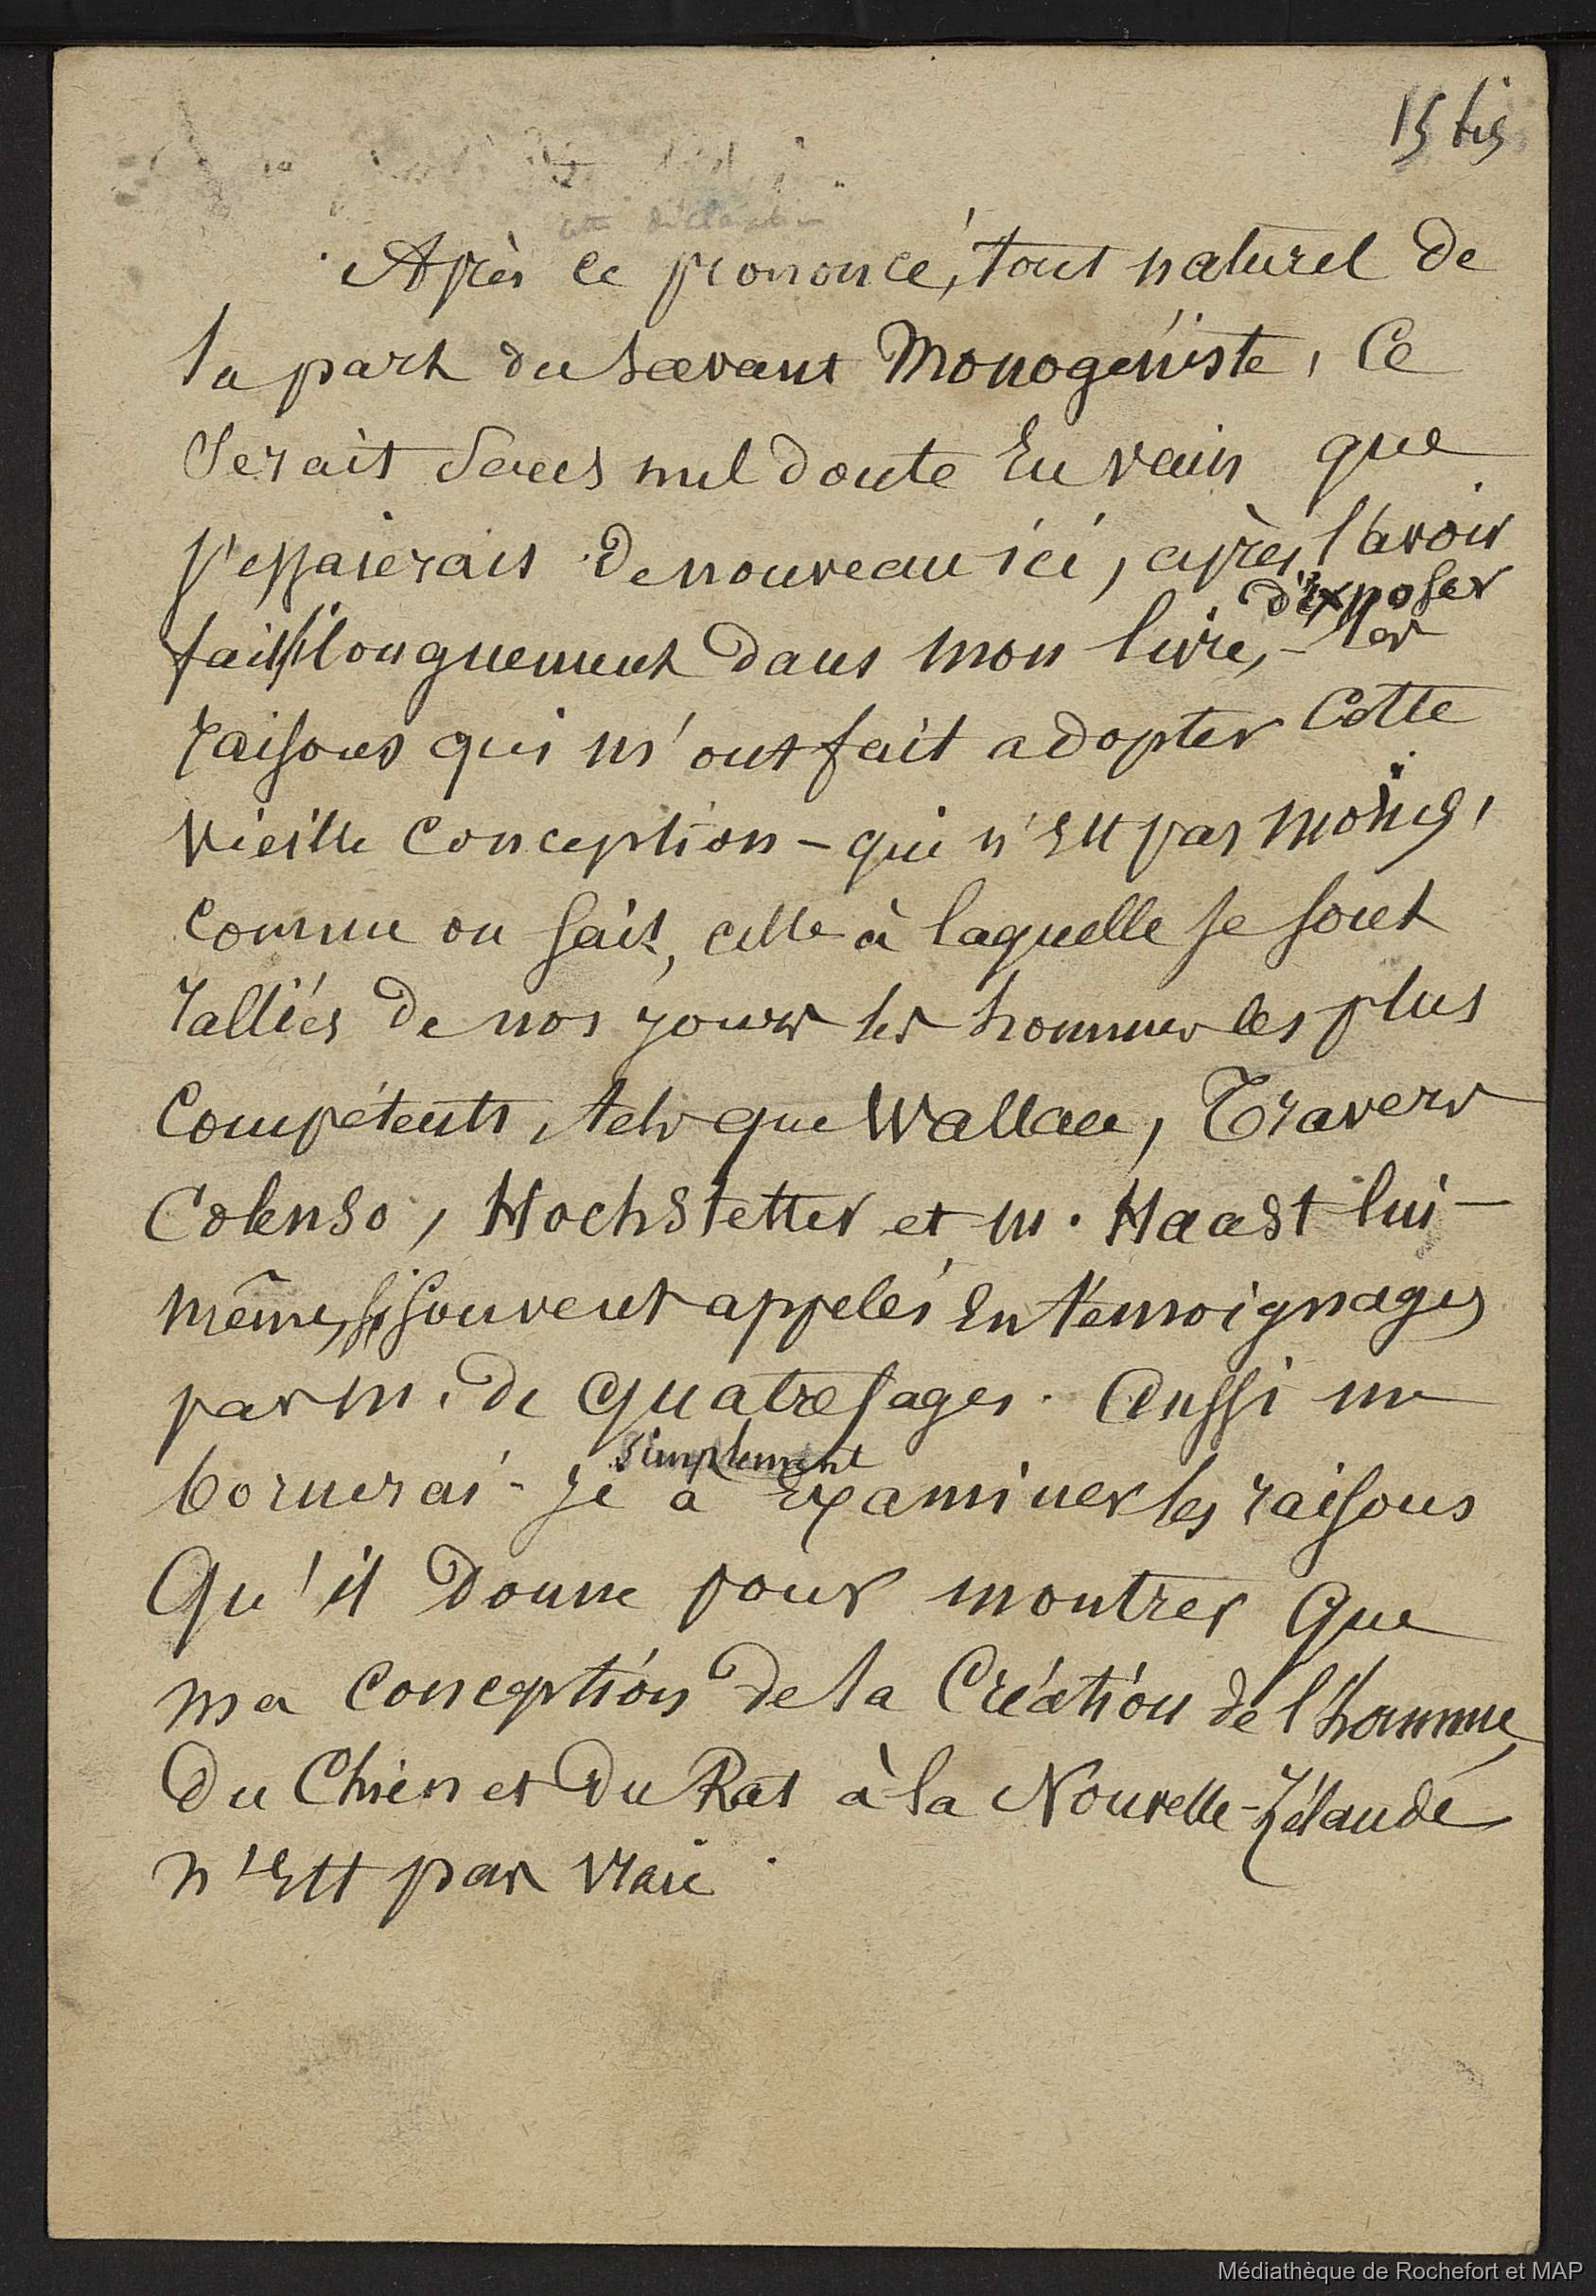 15 bis
Après ce prononcé, tout naturel de
la part du savant Monogéniste, ce
serait sans nul doute en vain que
j'essaierais de nouveau ici, après l'avoir
d'exposer
fait si longuement dans mon livre, - les
raisons qui m'ont fait adopter cette
vieille conception - qui n'est pas moins,
comme on sait, celle à laquelle se sont
ralliés de nos jours les hommes les plus
compétents, tels que Wallace, Travers
Colenso, Hochstetter et M. Haast lui-
même, si souvent appelés en témoignages
par M. de Quatrefages. Aussi me
simplement
bornerai-je à examiner les raisons
Qu'il donne pour montrer que
ma conception de la Création de l'homme,
du Chien et du Rat à la Nouvelle-Zélande
n'est pas vraie.
Médiathèque de Rochefort et MAP